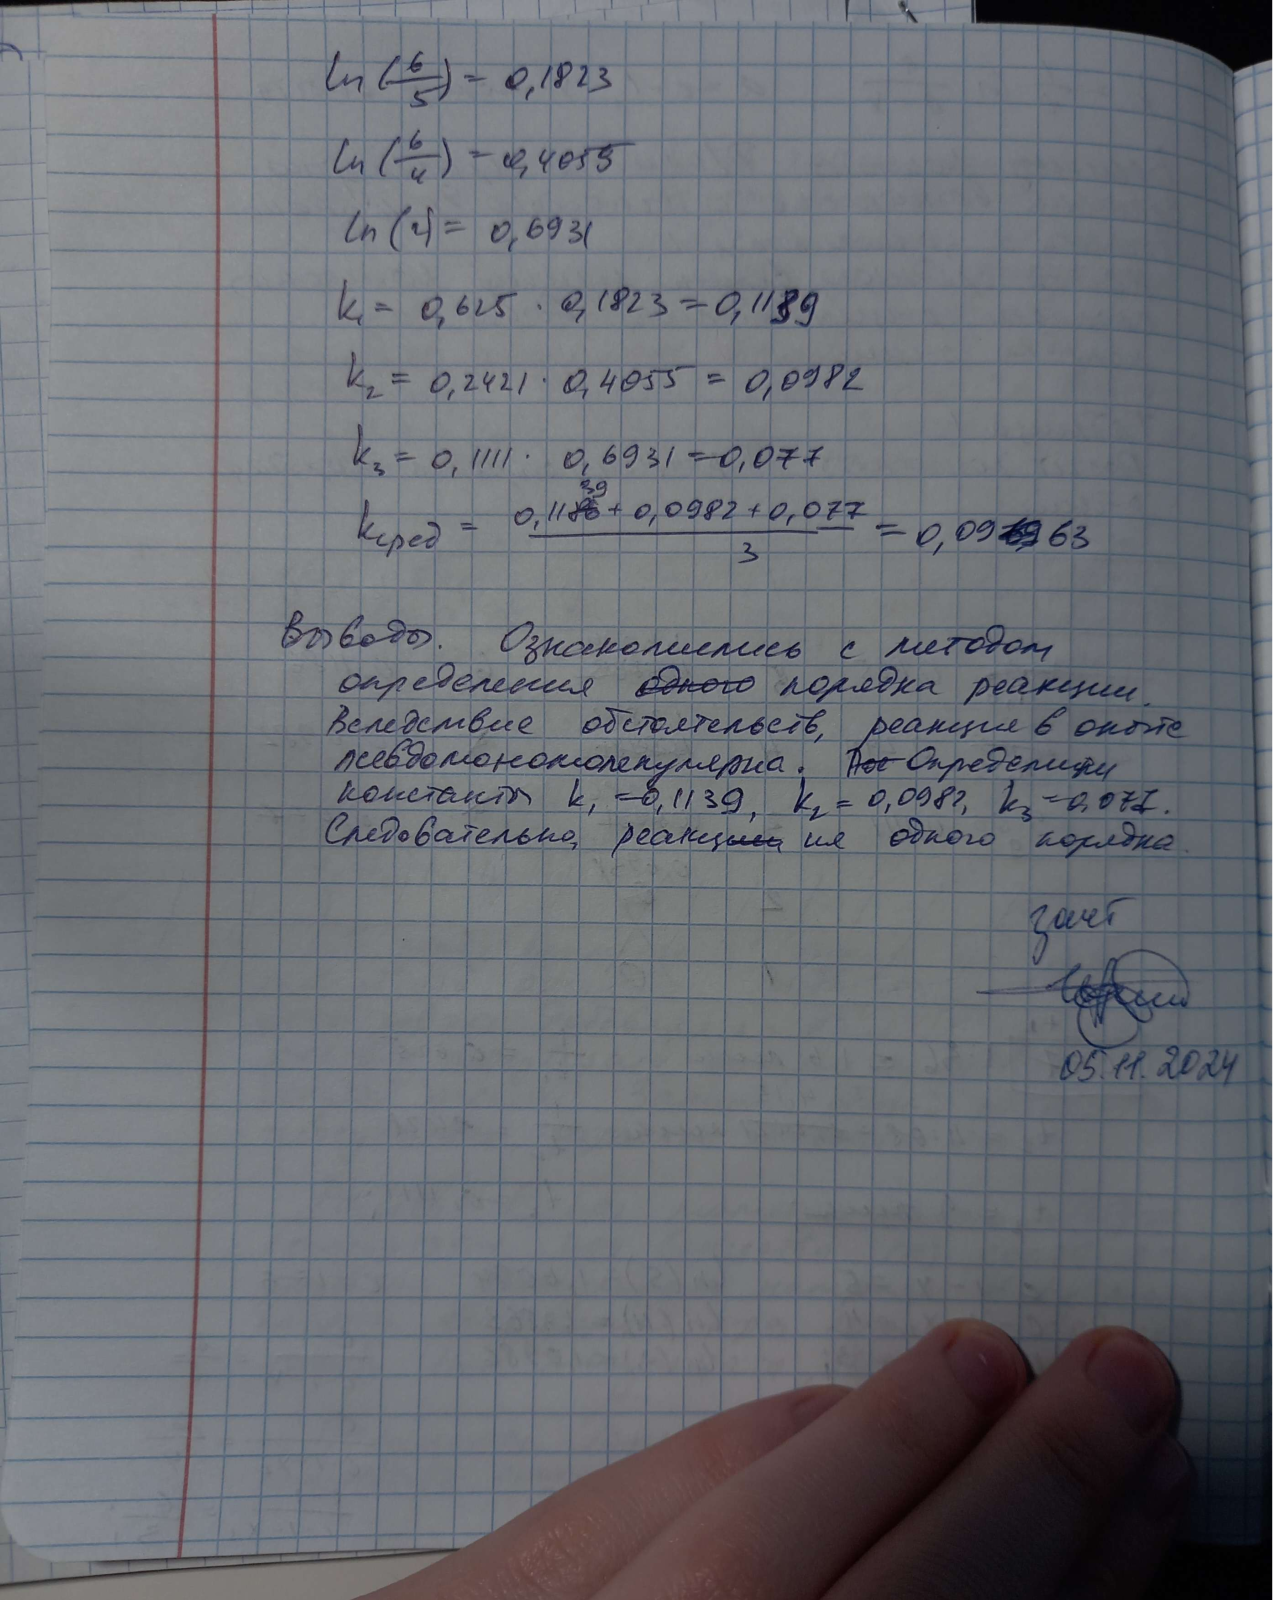 ln(6/5) = 0,1823
ln(6/4) = 0,4055
ln(2) = 0,6931
k₁ = 0,625 · 0,1823 = 0,1139
k₂ = 0,2421 · 0,4055 = 0,0982
k₃ = 0,1111 · 0,6931 = 0,077
kсред = (0,1139 + 0,0982 + 0,077)/3 = 0,0963
Выводы. Ознакомились с методом
определения одного порядка реакции.
Вследствие обстоятельств, реакция в опыте
псевдомономолекулярна. Определили
константы k₁ = 0,1139, k₂ = 0,0982, k₃ = 0,077.
Следовательно, реакция одного порядка.
зачёт
05.11.2024